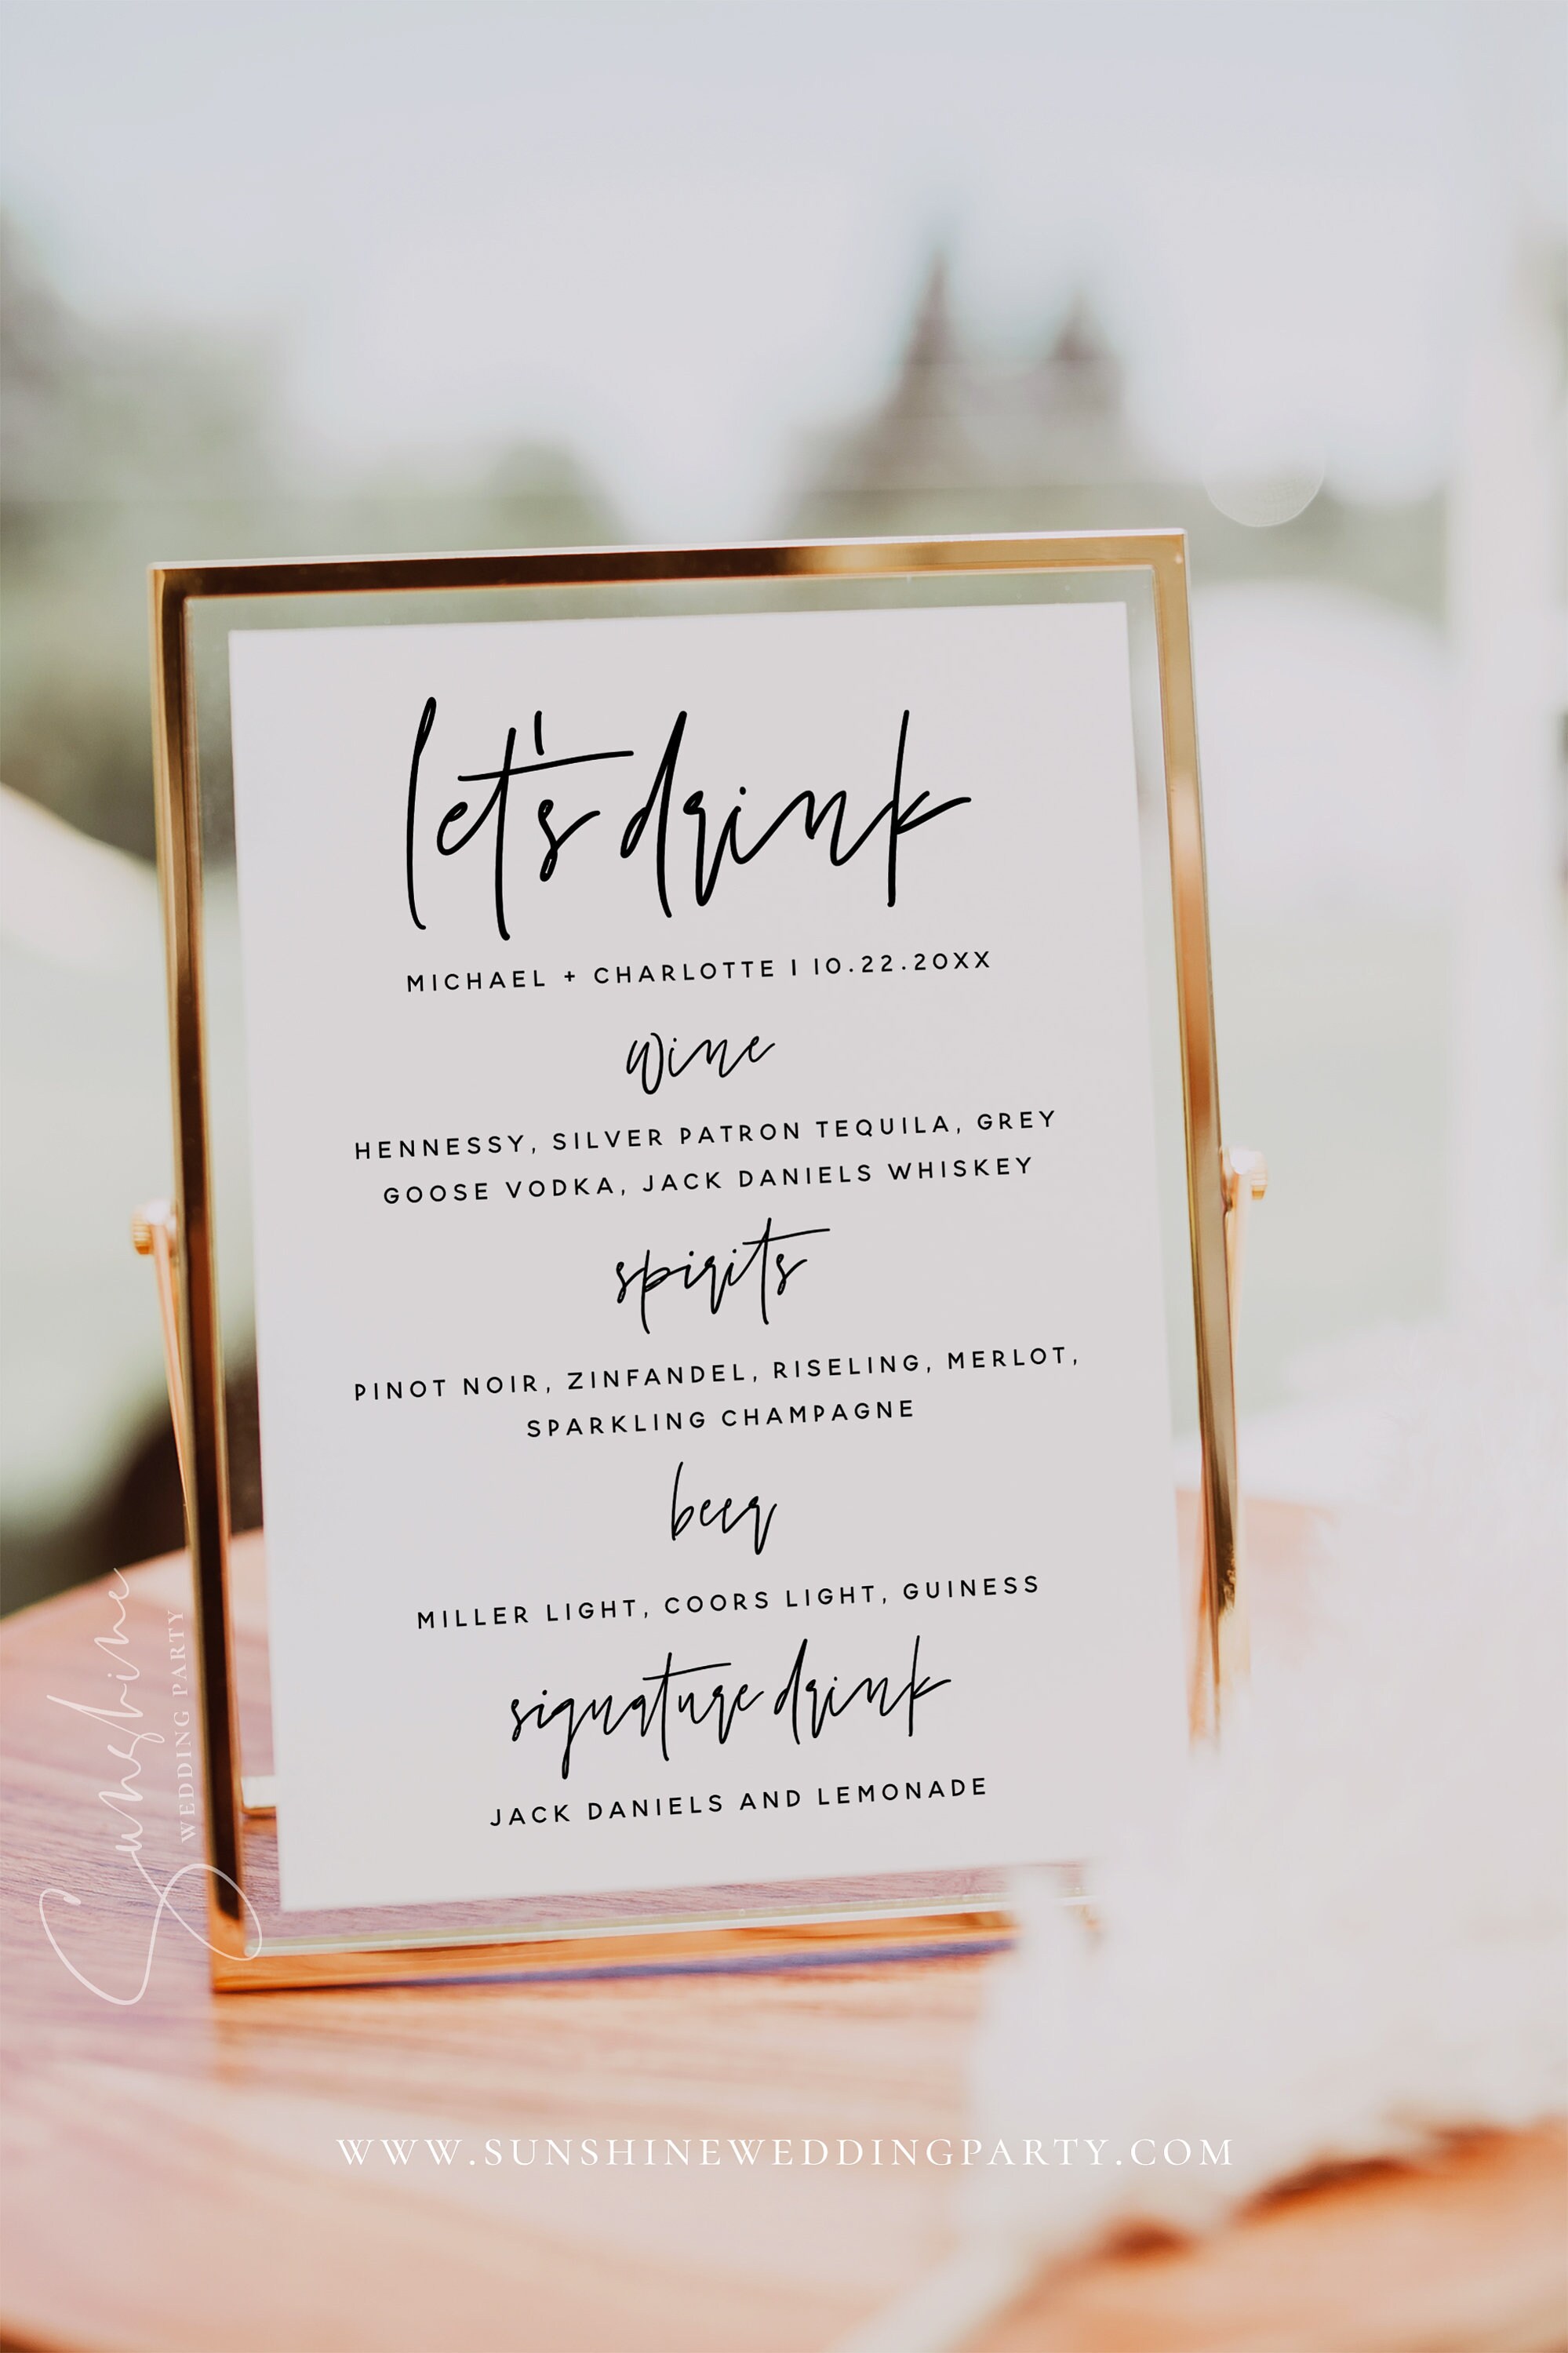 let's drink
MICHAEL + CHARLOTTE | 10.22.20XX
wine
HENNESSY, SILVER PATRON TEQUILA, GREY
GOOSE VODKA, JACK DANIELS WHISKEY
spirits
PINOT NOIR, ZINFANDEL, RISELING, MERLOT,
SPARKLING CHAMPAGNE
beer
MILLER LIGHT, COORS LIGHT, GUINESS
signature drink
JACK DANIELS AND LEMONADE
Sunshine
WEDDING PARTY
WWW.SUNSHINEWEDDINGPARTY.COM